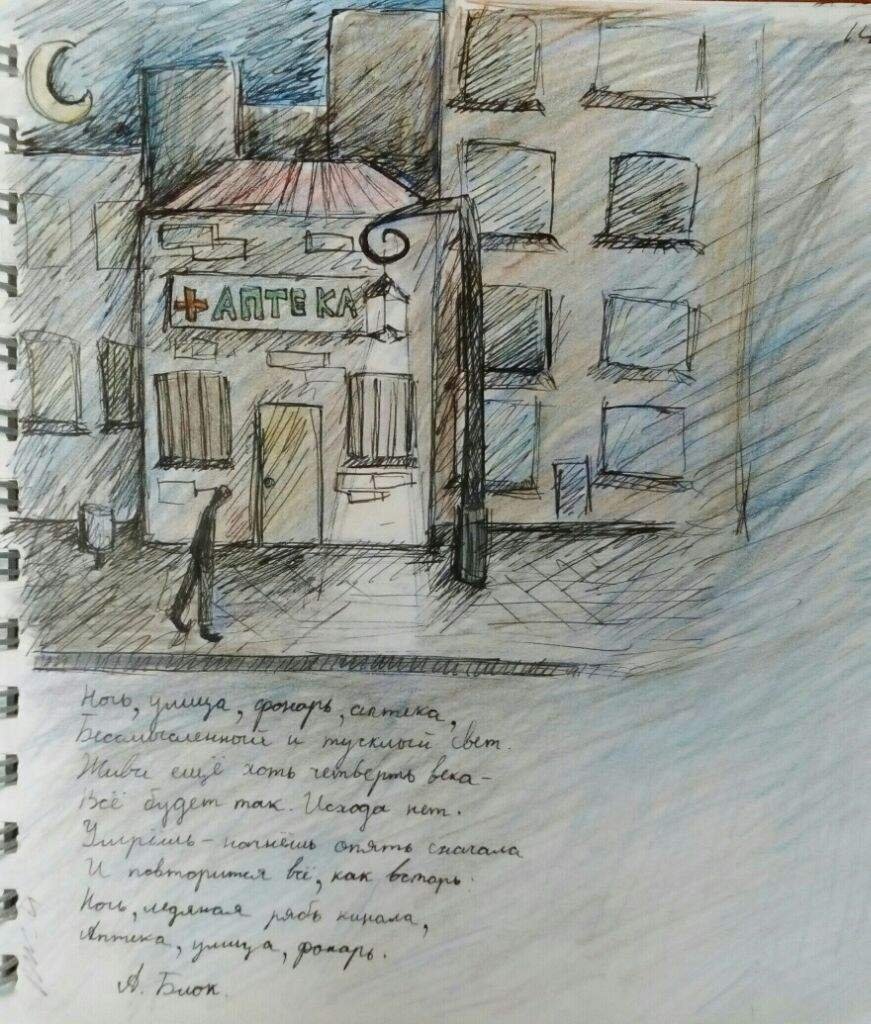 АПТЕКА
Ночь, улица, фонарь, аптека,
Бессмысленный и тусклый свет.
Живи ещё хоть четверть века -
Всё будет так. Исхода нет.
Умрёшь - начнёшь опять сначала
И повторится всё, как встарь:
Ночь, ледяная рябь канала,
Аптека, улица, фонарь.
А. Блок.